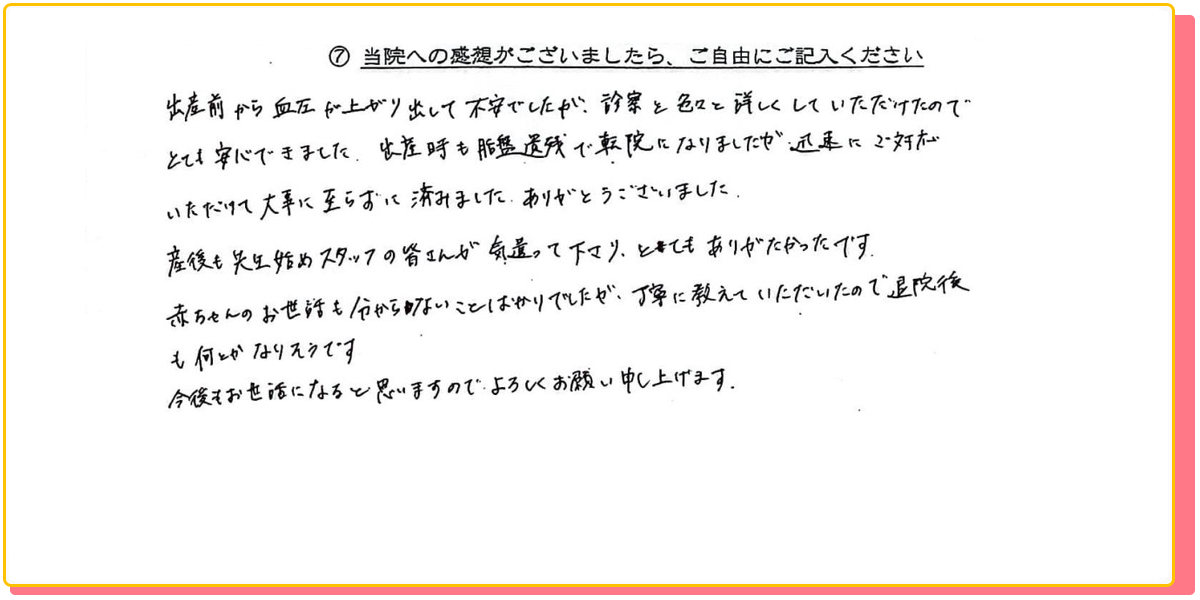 ⑦ 当院への感想がございましたら、ご自由にご記入ください
出産前から血圧が上がり出して不安でしたが、診察と色々と詳しくしていただけたので
とても安心できました。出産時も胎盤遺残で転院になりましたが、迅速にご対応
いただけて大事に至らずに済みました。ありがとうございました。
産後も先生始めスタッフの皆さんが気遣って下さり、とてもありがたかったです。
赤ちゃんのお世話も分からないことばかりでしたが、丁寧に教えていただいたので退院後
も何とかなりそうです
今後もお世話になると思いますので、よろしくお願い申し上げます。